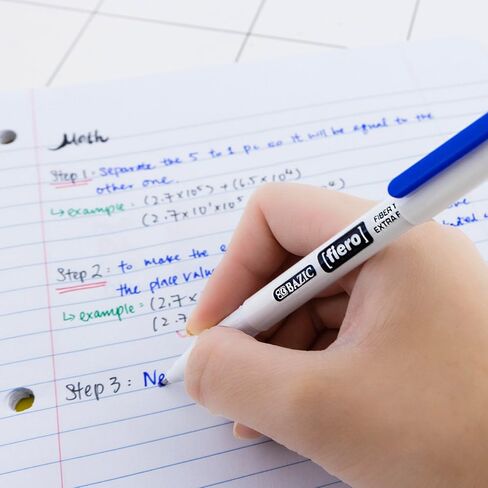 Math
Step 1: Separate the 5 to 1 pl so it will be equal to the
other one.
↳example: (2.7×10⁵) + (6.5×10⁴)
(2.7×10¹×10⁴)
Step 2: to make the e
the place valu
↳example: (2.7×
(2.7
Step 3: Ne
BAZIC [fiero]
FIBER T
EXTRA F